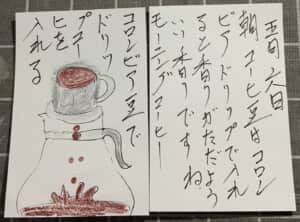 五月六日
朝コーヒ豆はコロン
ビアドリップで入れ
ると香りがただよう
いい香りですね
モーニングコーヒー
コロンビア豆で
ドリッ
プコー
ヒを
入れる